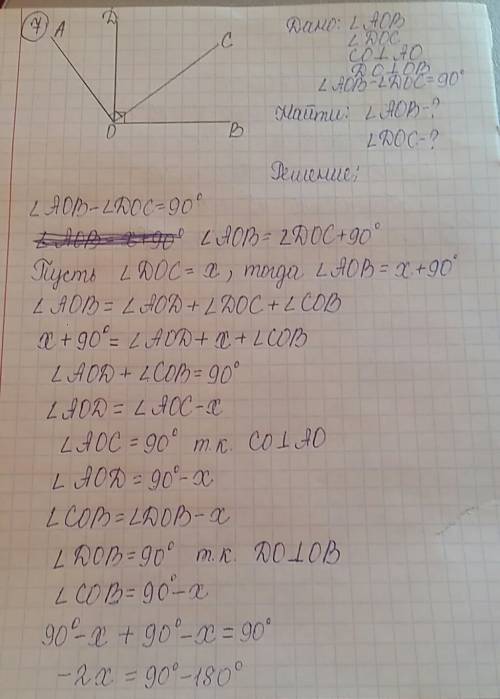 7
A
D
C
O
B
Дано: ∠AOB
∠DOC
CO⊥AO
DO⊥OB
∠AOB-∠DOC=90°
Найти: ∠AOB-?
∠DOC-?
Решение:
∠AOB-∠DOC=90°
∠AOB=x+90° ∠AOB=∠DOC+90°
Пусть ∠DOC=x, тогда ∠AOB=x+90°
∠AOB=∠AOD+∠DOC+∠COB
x+90°=∠AOD+x+∠COB
∠AOD+∠COB=90°
∠AOD=∠AOC-x
∠AOC=90° т.к. CO⊥AO
∠AOD=90°-x
∠COB=∠DOB-x
∠DOB=90° т.к. DO⊥OB
∠COB=90°-x
90°-x+90°-x=90°
-2x=90°-180°